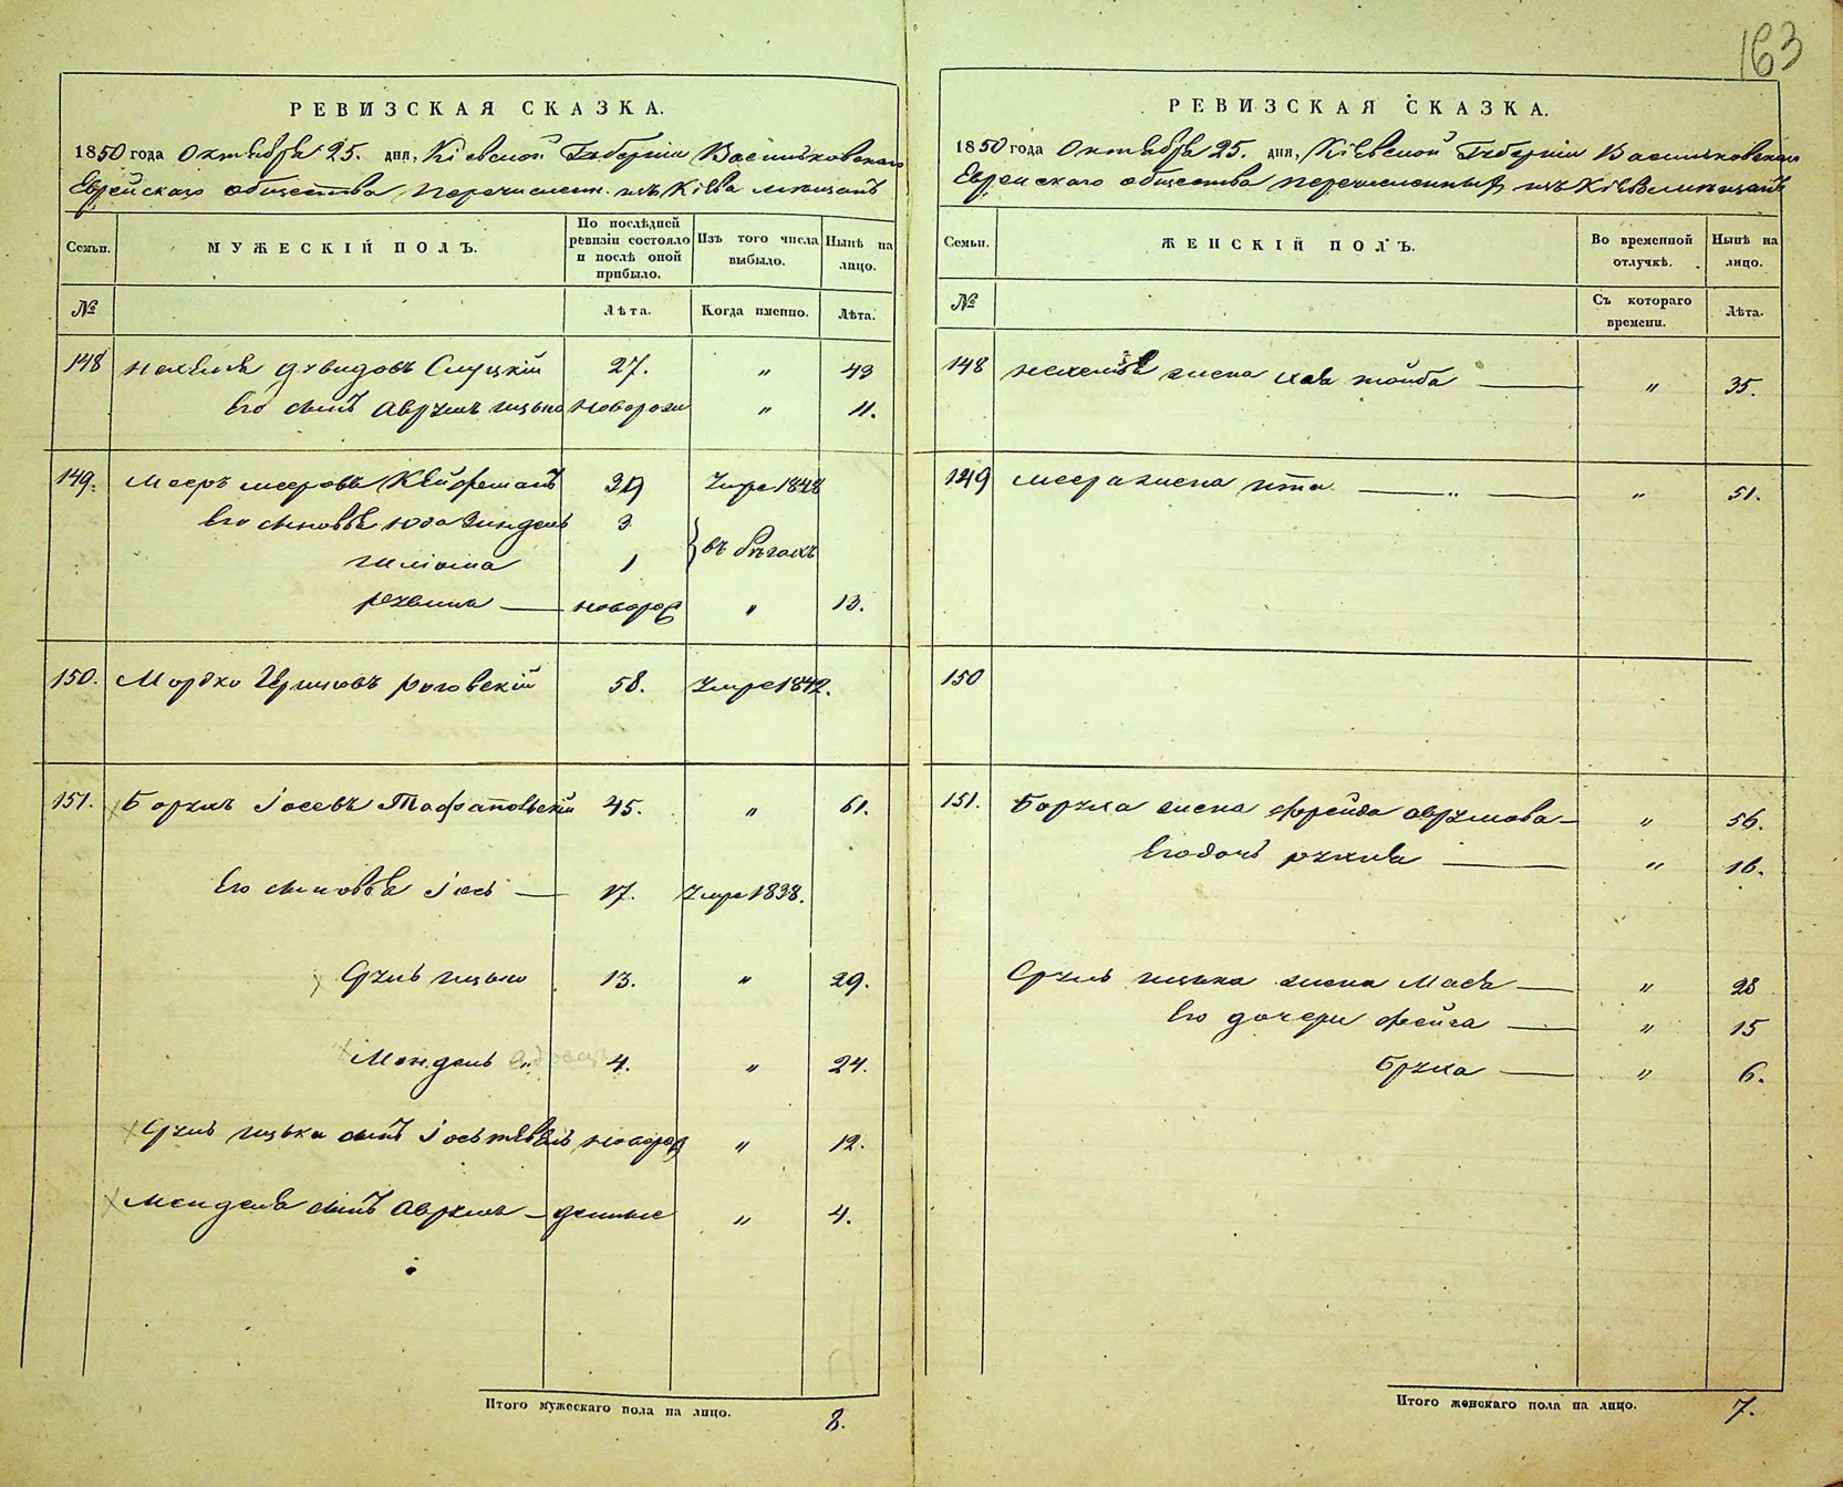 163
РЕВИЗСКАЯ СКАЗКА.
1850 года Октября 25. дня, Кіевской Губерніи Васильковскаго
Еврейскаго общества перечисленн. изъ Кіева мѣщанъ
Семьи. МУЖЕСКІЙ ПОЛЪ. По послѣдней ревизіи состояло и послѣ оной прибыло. Изъ того числа выбыло. Нынѣ на лицо.
№ Лѣта. Когда именно. Лѣта.
148 Нахмия Давидовъ Слуцкій 27. " 43
Его сынъ Аврумъ Ицько новорож " 11.
149. Мееръ Мееровъ 39 Умре 1848
Его сыновья Юда Зиндель 3 } въ бѣгахъ
1
— новорож " 13.
150. Мордко Роговскій 58. Умре 1842.
151. Борухъ Іосевъ 45. " 61.
Его сыновья Іось — 17. Умре 1838.
Сруль Ицько 13. " 29.
Мендель " 4. " 24.
Сруль Ицька сынъ Іось новорож " 12.
Менделя сынъ Аврумъ — " 4.
Итого мужескаго пола на лицо. 8.
РЕВИЗСКАЯ СКАЗКА.
1850 года Октября 25. дня, Кіевской Губерніи Васильковскаго
Еврейскаго общества перечисленныхъ изъ Кіева мѣщанъ
Семьи. ЖЕНСКІЙ ПОЛЪ. Во временной отлучкѣ. Нынѣ на лицо.
№ Съ котораго времени. Лѣта.
148 жена Хая Тойба — " 35.
149 Меера жена Ита — " — " 51.
150
151. Боруха жена Фрейда Аврумова — " 56.
Его дочь Рухля — " 16.
Сруль Ицька жена Мася — " 28
Его дочери Фейга — " 15
Бруха — " 6.
Итого женскаго пола на лицо. 7.